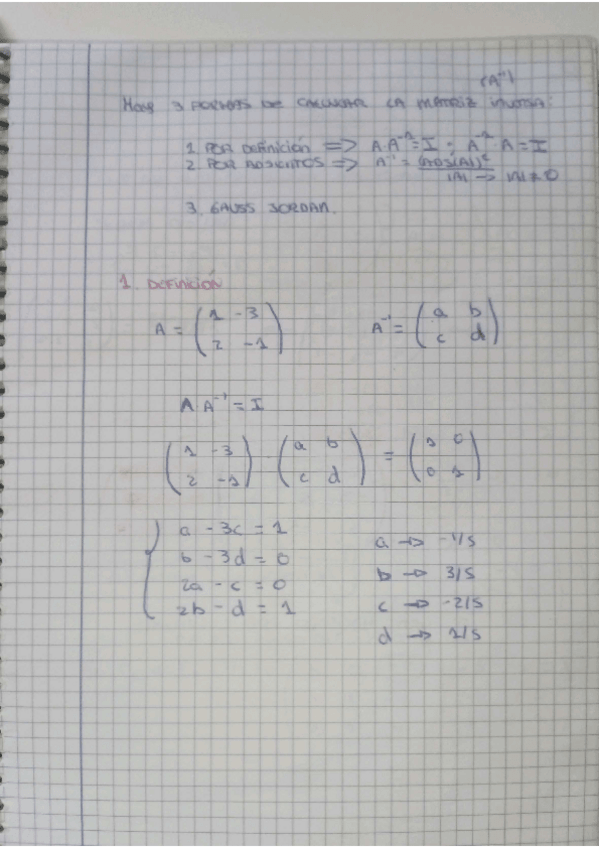 (A⁻¹)
Hay 3 FORMAS DE CALCULAR LA MATRIZ INVERSA:
1. POR Definición => A·A⁻¹ = I ; A⁻¹·A = I
2. POR ADJUNTOS => A⁻¹ = (ADJ(A))ᵗ / |A| → |A| ≠ 0
3. GAUSS JORDAN.
1. DEFINICIÓN
A = ( 1 -3 ) A⁻¹ = ( a b )
( 2 -1 ) ( c d )
A·A⁻¹ = I
( 1 -3 ) · ( a b ) = ( 1 0 )
( 2 -1 ) ( c d ) ( 0 1 )
a - 3c = 1
b - 3d = 0
2a - c = 0
2b - d = 1
a → -1/5
b → 3/5
c → -2/5
d → 1/5